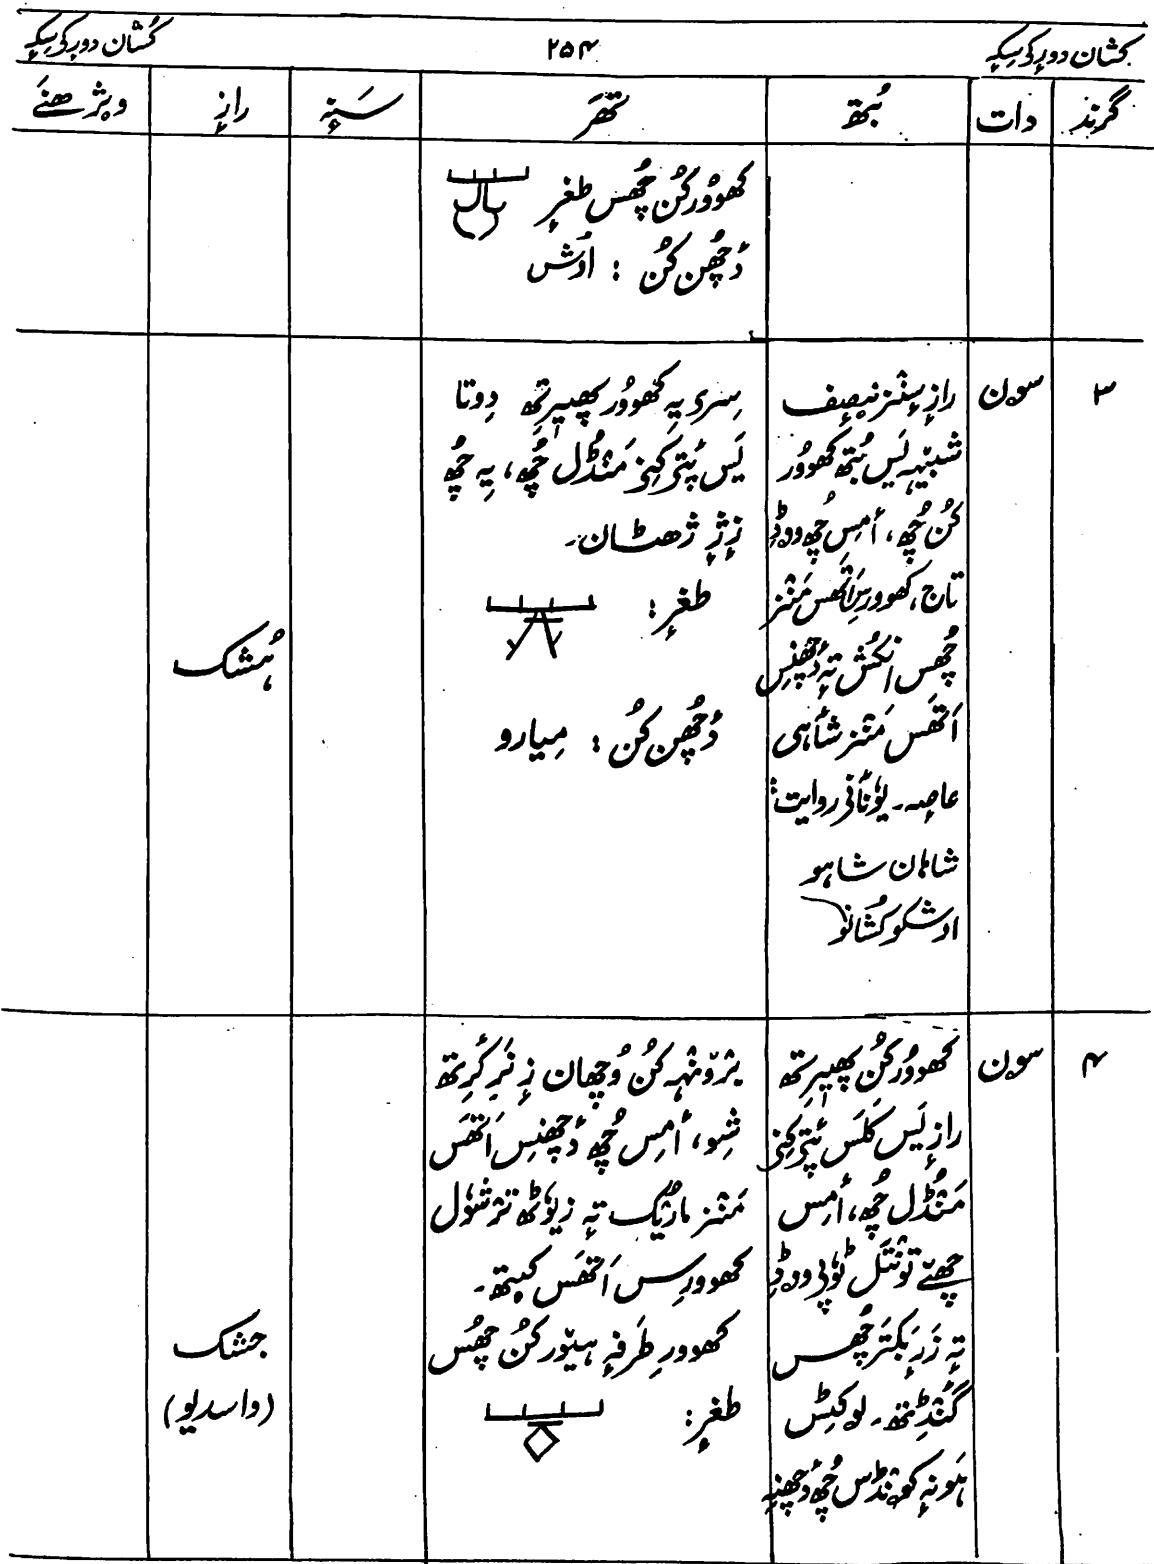 کُشان دورٕکؠ سِکہٕ
۲۵۴
کُشان دورٕکؠ سِکہٕ
گرٛند دات بُتھ تھَر سَنہٕ رازٕ وؠژھنَے
کھوٚوُر کُن چھُس طغرٕ
دٔچھُن کُن : اردش
۳
سۄن
رازٕ سٕنٛز نِصِف
شبیٖہہ یَس بُتھ کھوٚوُر
کُن چھُ، أمِس چھُ ووڈِ
تاج، کھوورِس اَتھَس مَنٛز
چھُس انکُش تہٕ دٔچھنِس
اَتھَس مَنٛز شٲہی
عاصہ۔ یوٗنٲنی روایت:
شاہان شاہو
ارشکو کُشانو
سِری یہِ کھوٚوُر پھیٖرِتھ دِوتا
یَس پٔتۍ کِنۍ مَنٛڈُل چھُ، یہِ چھُ
زٕژٕ ژھٹان۔
طغرٕ:
دٔچھُن کُن : مییارو
ہُشک
۴
سۄن
کھوٚوُر کُن پھیٖرِتھ
رازٕ یَس کَلَس پٔتۍ کِنۍ
مَنٛڈُل چھُ، أمِس
چھےٚ تونٛتَل ٹوٗپۍ ووڈِ
تہٕ زَرٕ بَکتَر چھُس
گٔنٛڈِتھ۔ لۄکٹِس
ہَونہٕ کونٛڈس چھُ دٔچھنہِ
برٛونٛہہ کُن وُچھان زٕ نَرِ کٔرِتھ
شِو، أمِس چھُ دٔچھنِس اَتھَس
مَنٛز مارٕیُک تہٕ زیوٗٹھ ترٛشوٗل
کھوورِس اَتھَس کیتھ۔
کھوورِ طَرفہٕ ہیوٚر کُن چھُس
طغرٕ:
جُشک
(واسدیو)